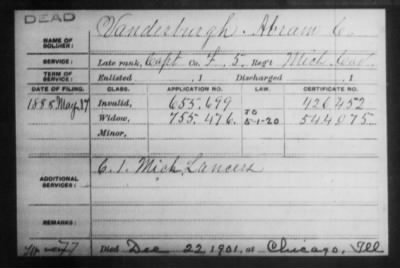 DEAD
NAME OF SOLDIER: Vanderburgh, Abram C.
SERVICE: Late rank, Capt Co. F, 5, Reg't Mich Cav.
TERM OF SERVICE: Enlisted , 1 Discharged , 1
DATE OF FILING. CLASS. APPLICATION NO. LAW. CERTIFICATE NO.
1888 May 17 Invalid, 655.699 426 452
Widow, 755.476. 5-1-20 544 075
Minor,
ADDITIONAL SERVICES: C. I. Mich Lancers
REMARKS:
Died Dec 22 1901, at Chicago, Ill